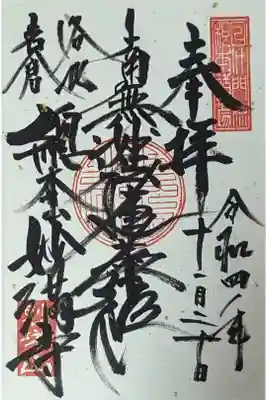 奉拝
令和四年
十一月二十日
南無妙法蓮華経
洛北
岩倉
総本山妙満寺